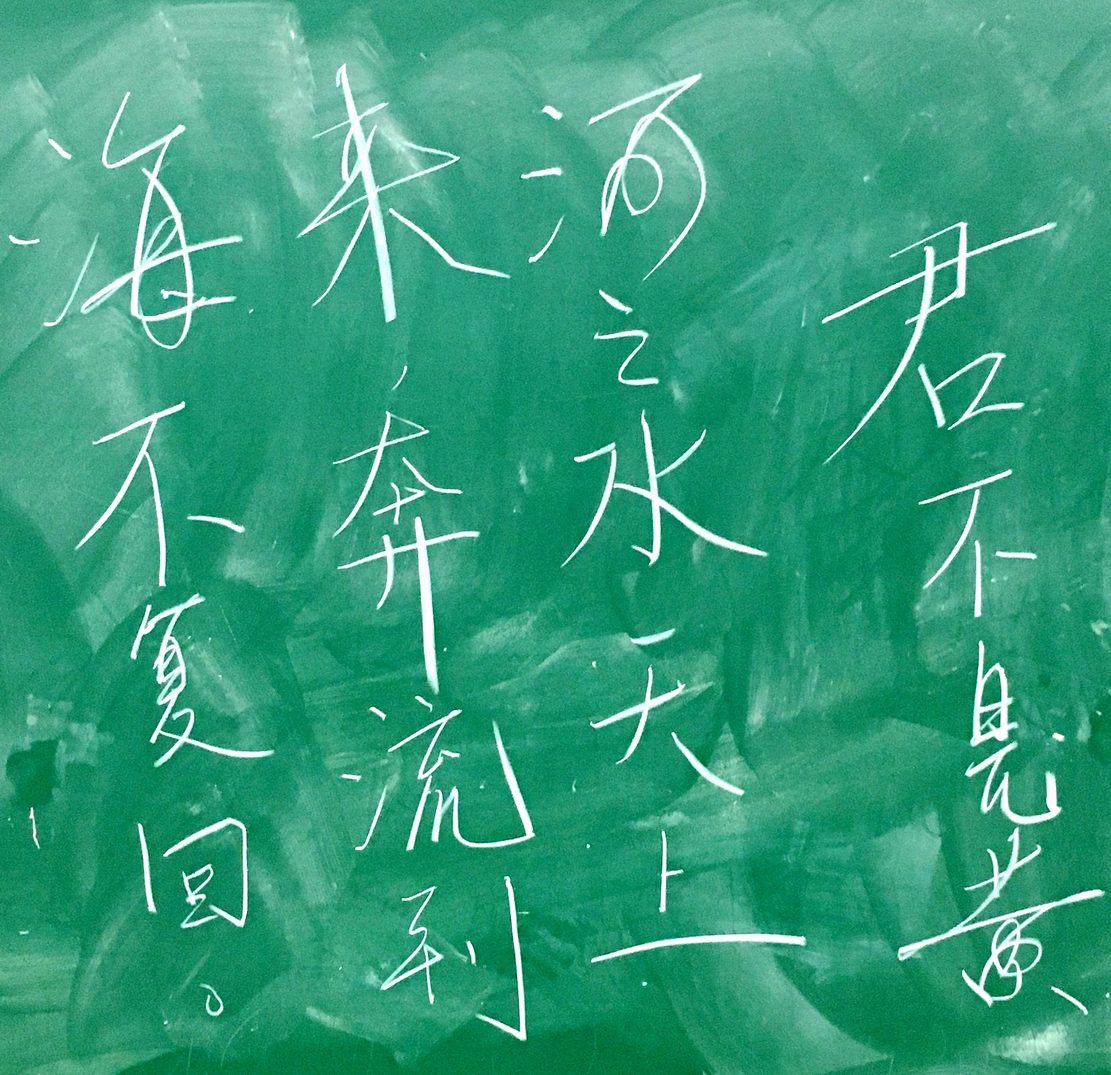 君不見黄
河之水天上
来，奔流到
海不复回。